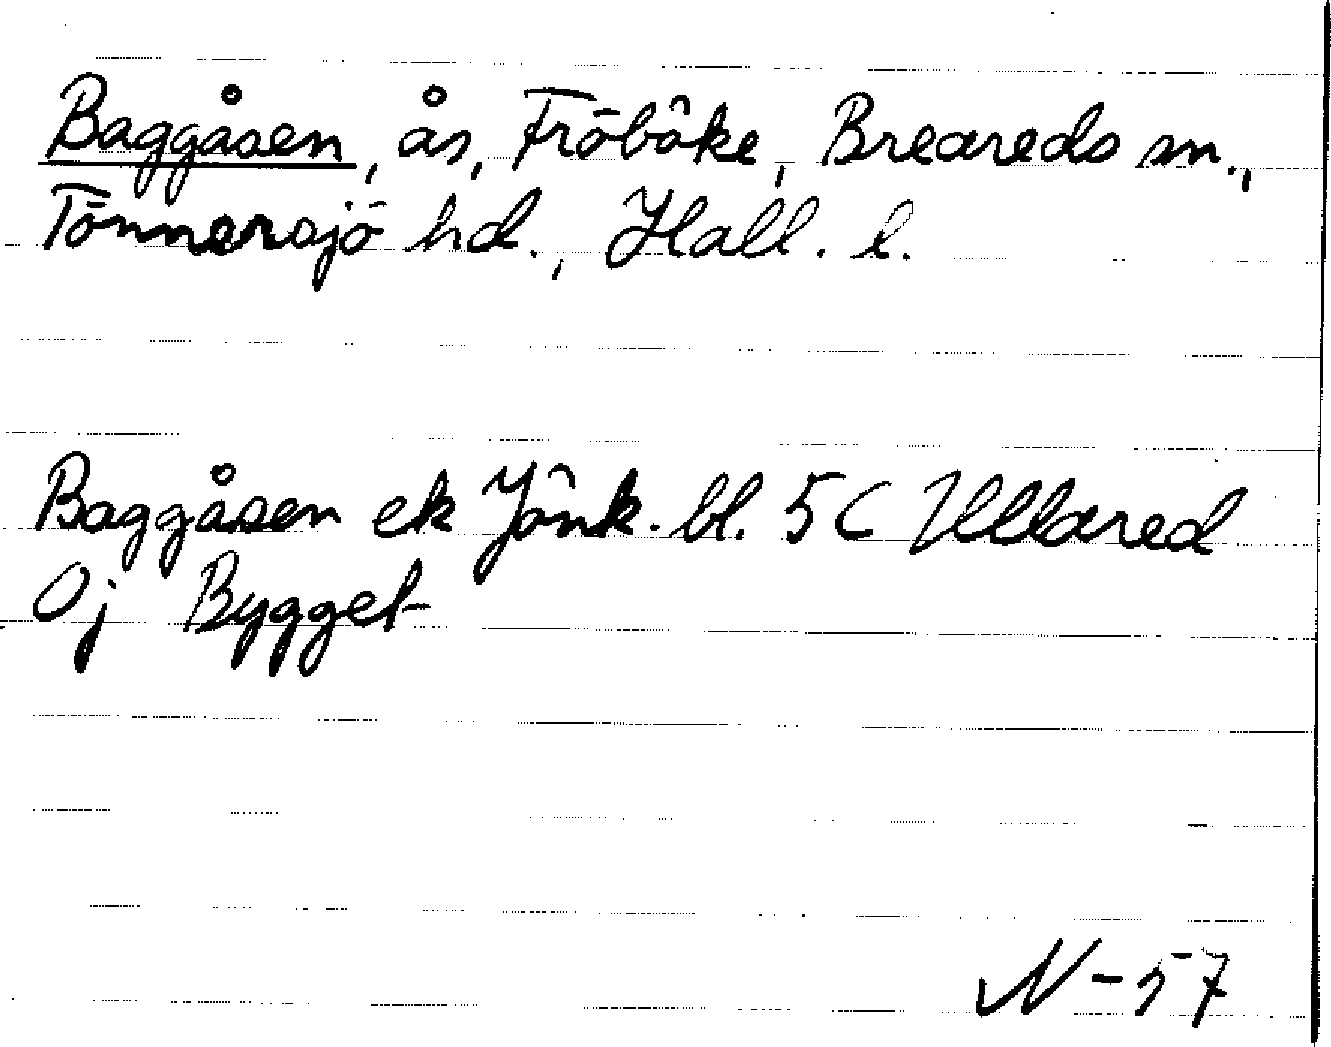 Baggåsen, ås, Fröböke, Breareds sn.,
Tönnersjö hd., Hall. l.
Baggåsen ek Jönk. bl. 5C Ullared
Oj Bygget
N-57